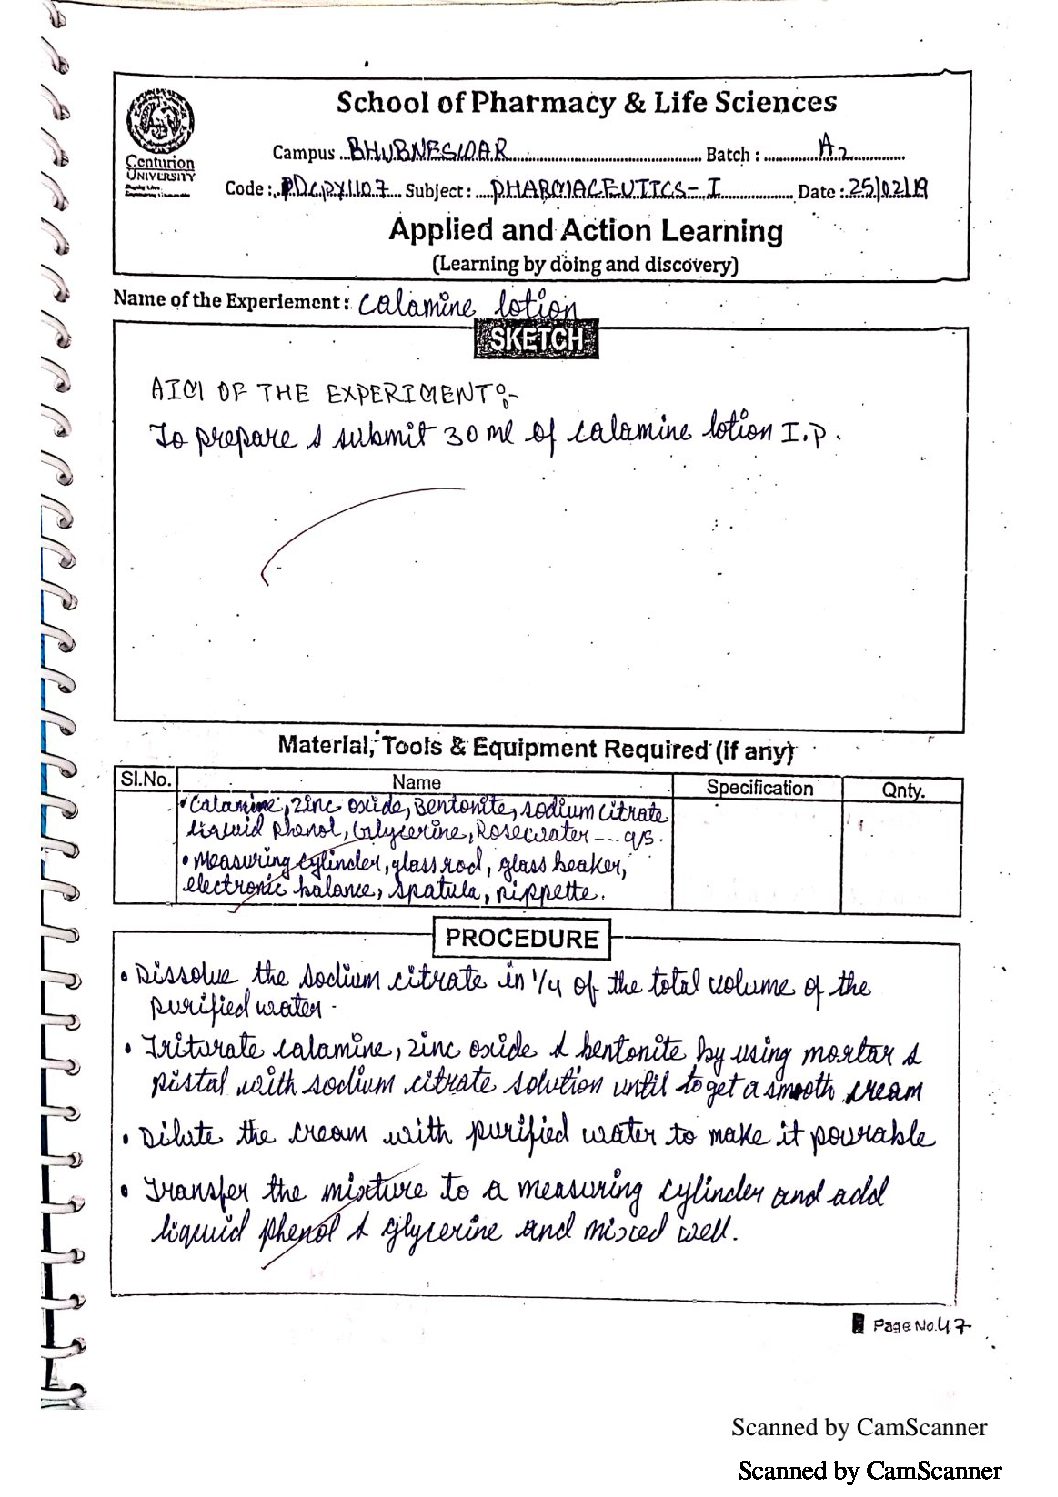 School of Pharmacy & Life Sciences
Centurion
UNIVERSITY
Campus ..BHUBNESWAR.......... Batch : ..........A2..........
Subject : ....PHARMACEUTICS-I.......... Date :.25/02/19
Applied and Action Learning
(Learning by doing and discovery)
Name of the Experiement : Calamine lotion
SKETCH
AIM OF THE EXPERIMENT:-
To prepare & submit 30 ml of calamine lotion I.P.
Material, Tools & Equipment Required (if any)
Sl.No. Name Specification Qnty.
• Calamine, zinc oxide, Bentonite, sodium citrate
liquid phenol, Glycerine, Rosewater --- q/s.
• Measuring cylinder, glass rod, glass beaker,
electronic balance, spatula, pippette.
PROCEDURE
• Dissolve the sodium citrate in 1/4 of the total volume of the
purified water -
• Triturate calamine, zinc oxide & bentonite by using mortar &
pistal with sodium citrate solution until to get a smooth cream
• Dilute the cream with purified water to make it pourable
• Transfer the mixture to a measuring cylinder and add
liquid phenol & glycerine and mixed well.
Page No.47
Scanned by CamScanner
Scanned by CamScanner